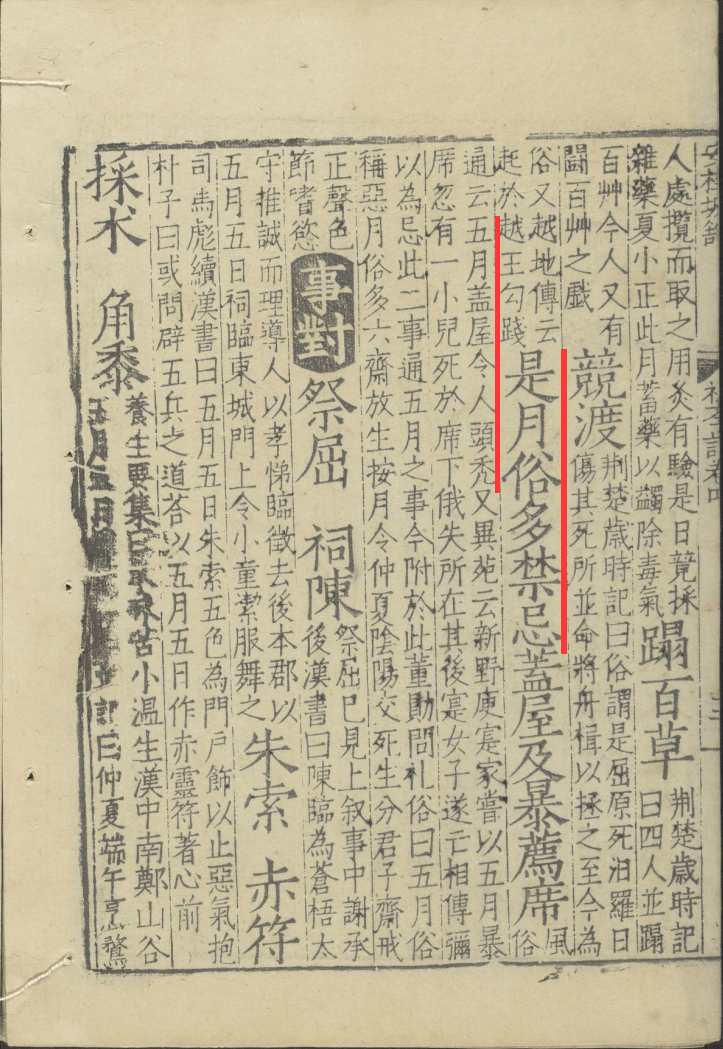 安桂坡館
初學記卷四
人處攬而取之用灸有驗是日競採
雜藥夏小正此月蓄藥以蠲除毒氣
蹋百草
荆楚歲時記
曰四人並蹋
百艸今人又有
鬪百艸之戲
競渡
荆楚歲時記曰俗謂是屈原死汨羅日
傷其死所並命將舟楫以拯之至今為
俗又越地傳云
起於越王勾踐
是月俗多禁忌蓋屋及暴薦席
風
俗
通云五月盖屋令人頭禿又異苑云新野庾寔家嘗以五月暴
席忽有一小兒死於席下俄失所在其後寔女子遂亡相傳彌
以為忌此二事通五月之事今附於此董勛問礼俗曰五月俗
稱惡月俗多六齋放生按月令仲夏陰陽交死生分君子齋戒
正聲色
節嗜慾
事對
祭屈 祠陳
祭屈已見上叙事中謝承
後漢書曰陳臨為蒼梧太
守推誠而理導人以孝悌臨徵去後本郡以
五月五日祠臨東城門上令小童潔服舞之
朱索 赤符
司馬彪續漢書曰五月五日朱索五色為門戶飾以止惡氣抱
朴子曰或問辟五兵之道荅以五月五日作赤靈符著心前
採朮 角黍
養生要集曰朮味苦小温生漢中南鄭山谷
五月五日 記曰仲夏端午烹鶩